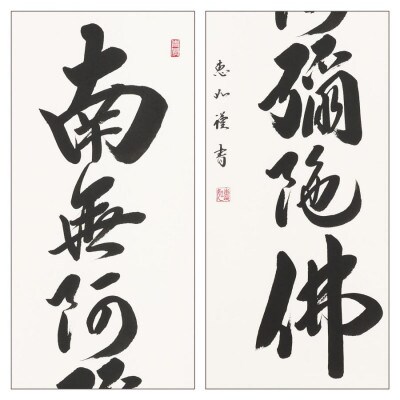 南無阿彌
阿彌陀佛
恵如謹書